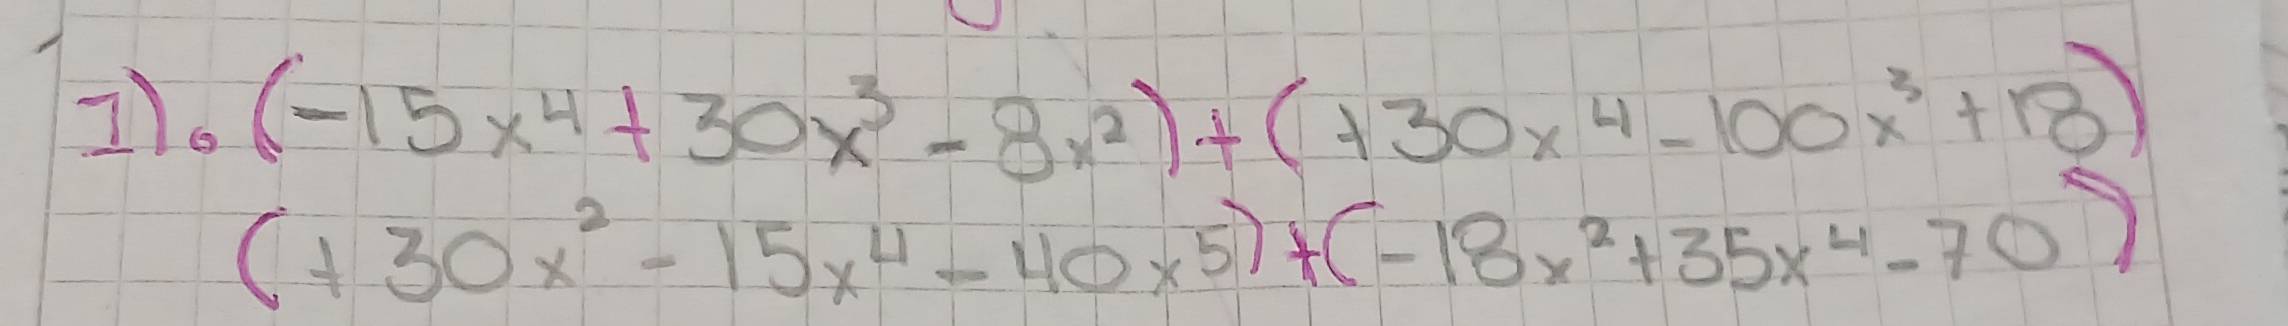 1). (-15x⁴ + 30x³ - 8x²) + (+30x⁴ - 100x³ + 18)
(+30x² - 15x⁴ - 40x⁵) + (-18x² + 35x⁴ - 70)